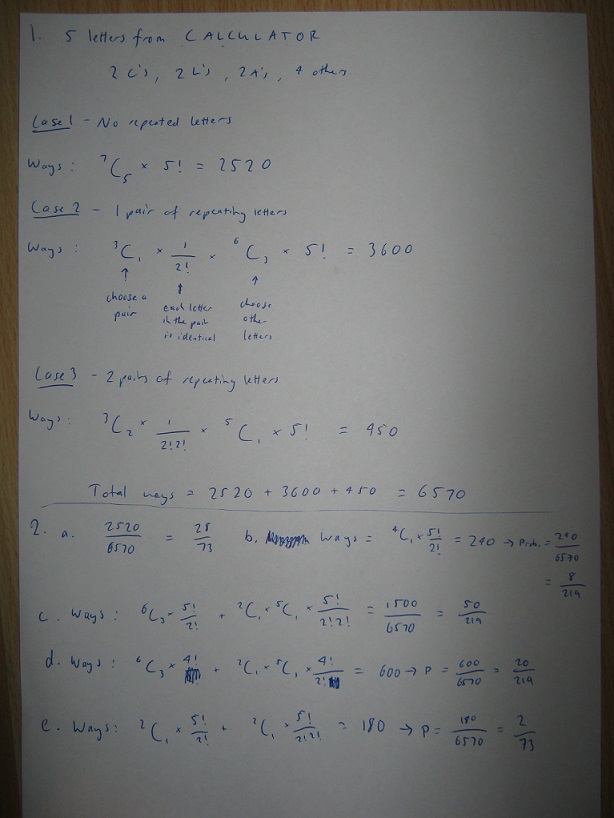 1. 5 letters from CALCULATOR
2 C's, 2 L's, 2A's, 4 others
Case 1 - No repeated letters
Ways: ⁷C₅ × 5! = 2520
Case 2 - 1 pair of repeating letters
Ways: ³C₁ × 1/2! × ⁶C₃ × 5! = 3600
↑ ↑ ↑
choose a pair
each letter in the pair is identical
choose other letters
Case 3 - 2 pairs of repeating letters
Ways: ³C₂ × 1/2!2! × ⁵C₁ × 5! = 450
Total ways = 2520 + 3600 + 450 = 6570
2. a. 2520/6570 = 28/73 b. Ways = ⁴C₁ × 5!/2! = 240 → Prob. = 240/6570
= 8/219
c. Ways: ⁶C₃ × 5!/2! + ²C₁ × ⁵C₁ × 5!/2!2! = 1500/6570 = 50/219
d. Ways: ⁶C₃ × 4! + ²C₁ × ⁵C₁ × 4!/2! = 600 → P = 600/6570 = 20/219
e. Ways: ²C₁ × 5!/2! + ²C₁ × 5!/2!2! = 180 → P = 180/6570 = 2/73